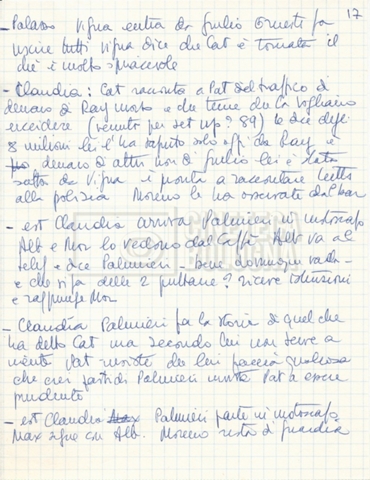 17
- Palazzo Vigna entra da Giulio Ornesti fa
uscire tutti Vigna dice che Cat è tornata il
che è molto spiacevole
- Claudia: Cat racconta a Pat del traffico di
denaro di Ray morto e che teme che Ca vogliano
uccidere (venuta per set up? 89) le dice degli
8 milioni lei l'ha saputo solo da Ray e
denaro di altri non di Giulio lei è stata
da Vigna è pronta a raccontare tutto
alla polizia Moreno le ha osservate dal bar
- est Claudia arriva Palmieri in motoscafo
Alb e Mor lo vedono dal Caffè Alb va al
telef e dice Palmieri - bene dovunque vada -
e che si fa delle 2 puttane? riceve istruzioni
e raggiunge Mor
- Claudia Palmieri fa la storia di quel che
ha detto Cat ma secondo lui non serve a
niente Pat insiste che lui faccia qualcosa
che Palmieri invita Pat a essere
prudente
- est Claudia Palmieri parte in motoscafo
Max segue con Alb. Moreno resta di guardia